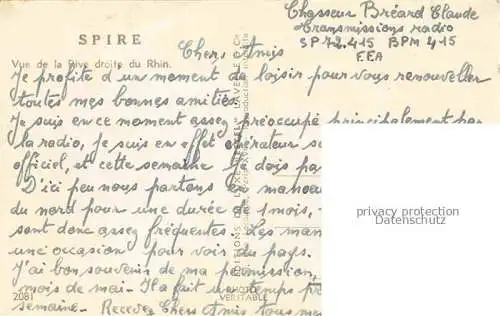 Chasseur Bréard Claude
Transmissions radio
SP 72.415 BPM 415
FFA
SPIRE
Vue de la Rive droite du Rhin.
Chers Amis
Je profite d'un moment de loisir pour vous renouveller
toutes mes bonnes amitiés.
Je suis en ce moment assez préoccupé principalement par
la radio, je suis en effet opérateur
officiel, et cette semaine je dois
D'ici peu nous partons en
du nord pour une durée de 1 mois,
sont donc assez fréquentes. Les
une occasion pour voir du pays.
J'ai bon souvenir de ma permission,
mois de mai. Il a fait un temps
semaine. Recevez Chers Amis tous mes
2081
PHOTO
VERITABLE
privacy protection
Datenschutz